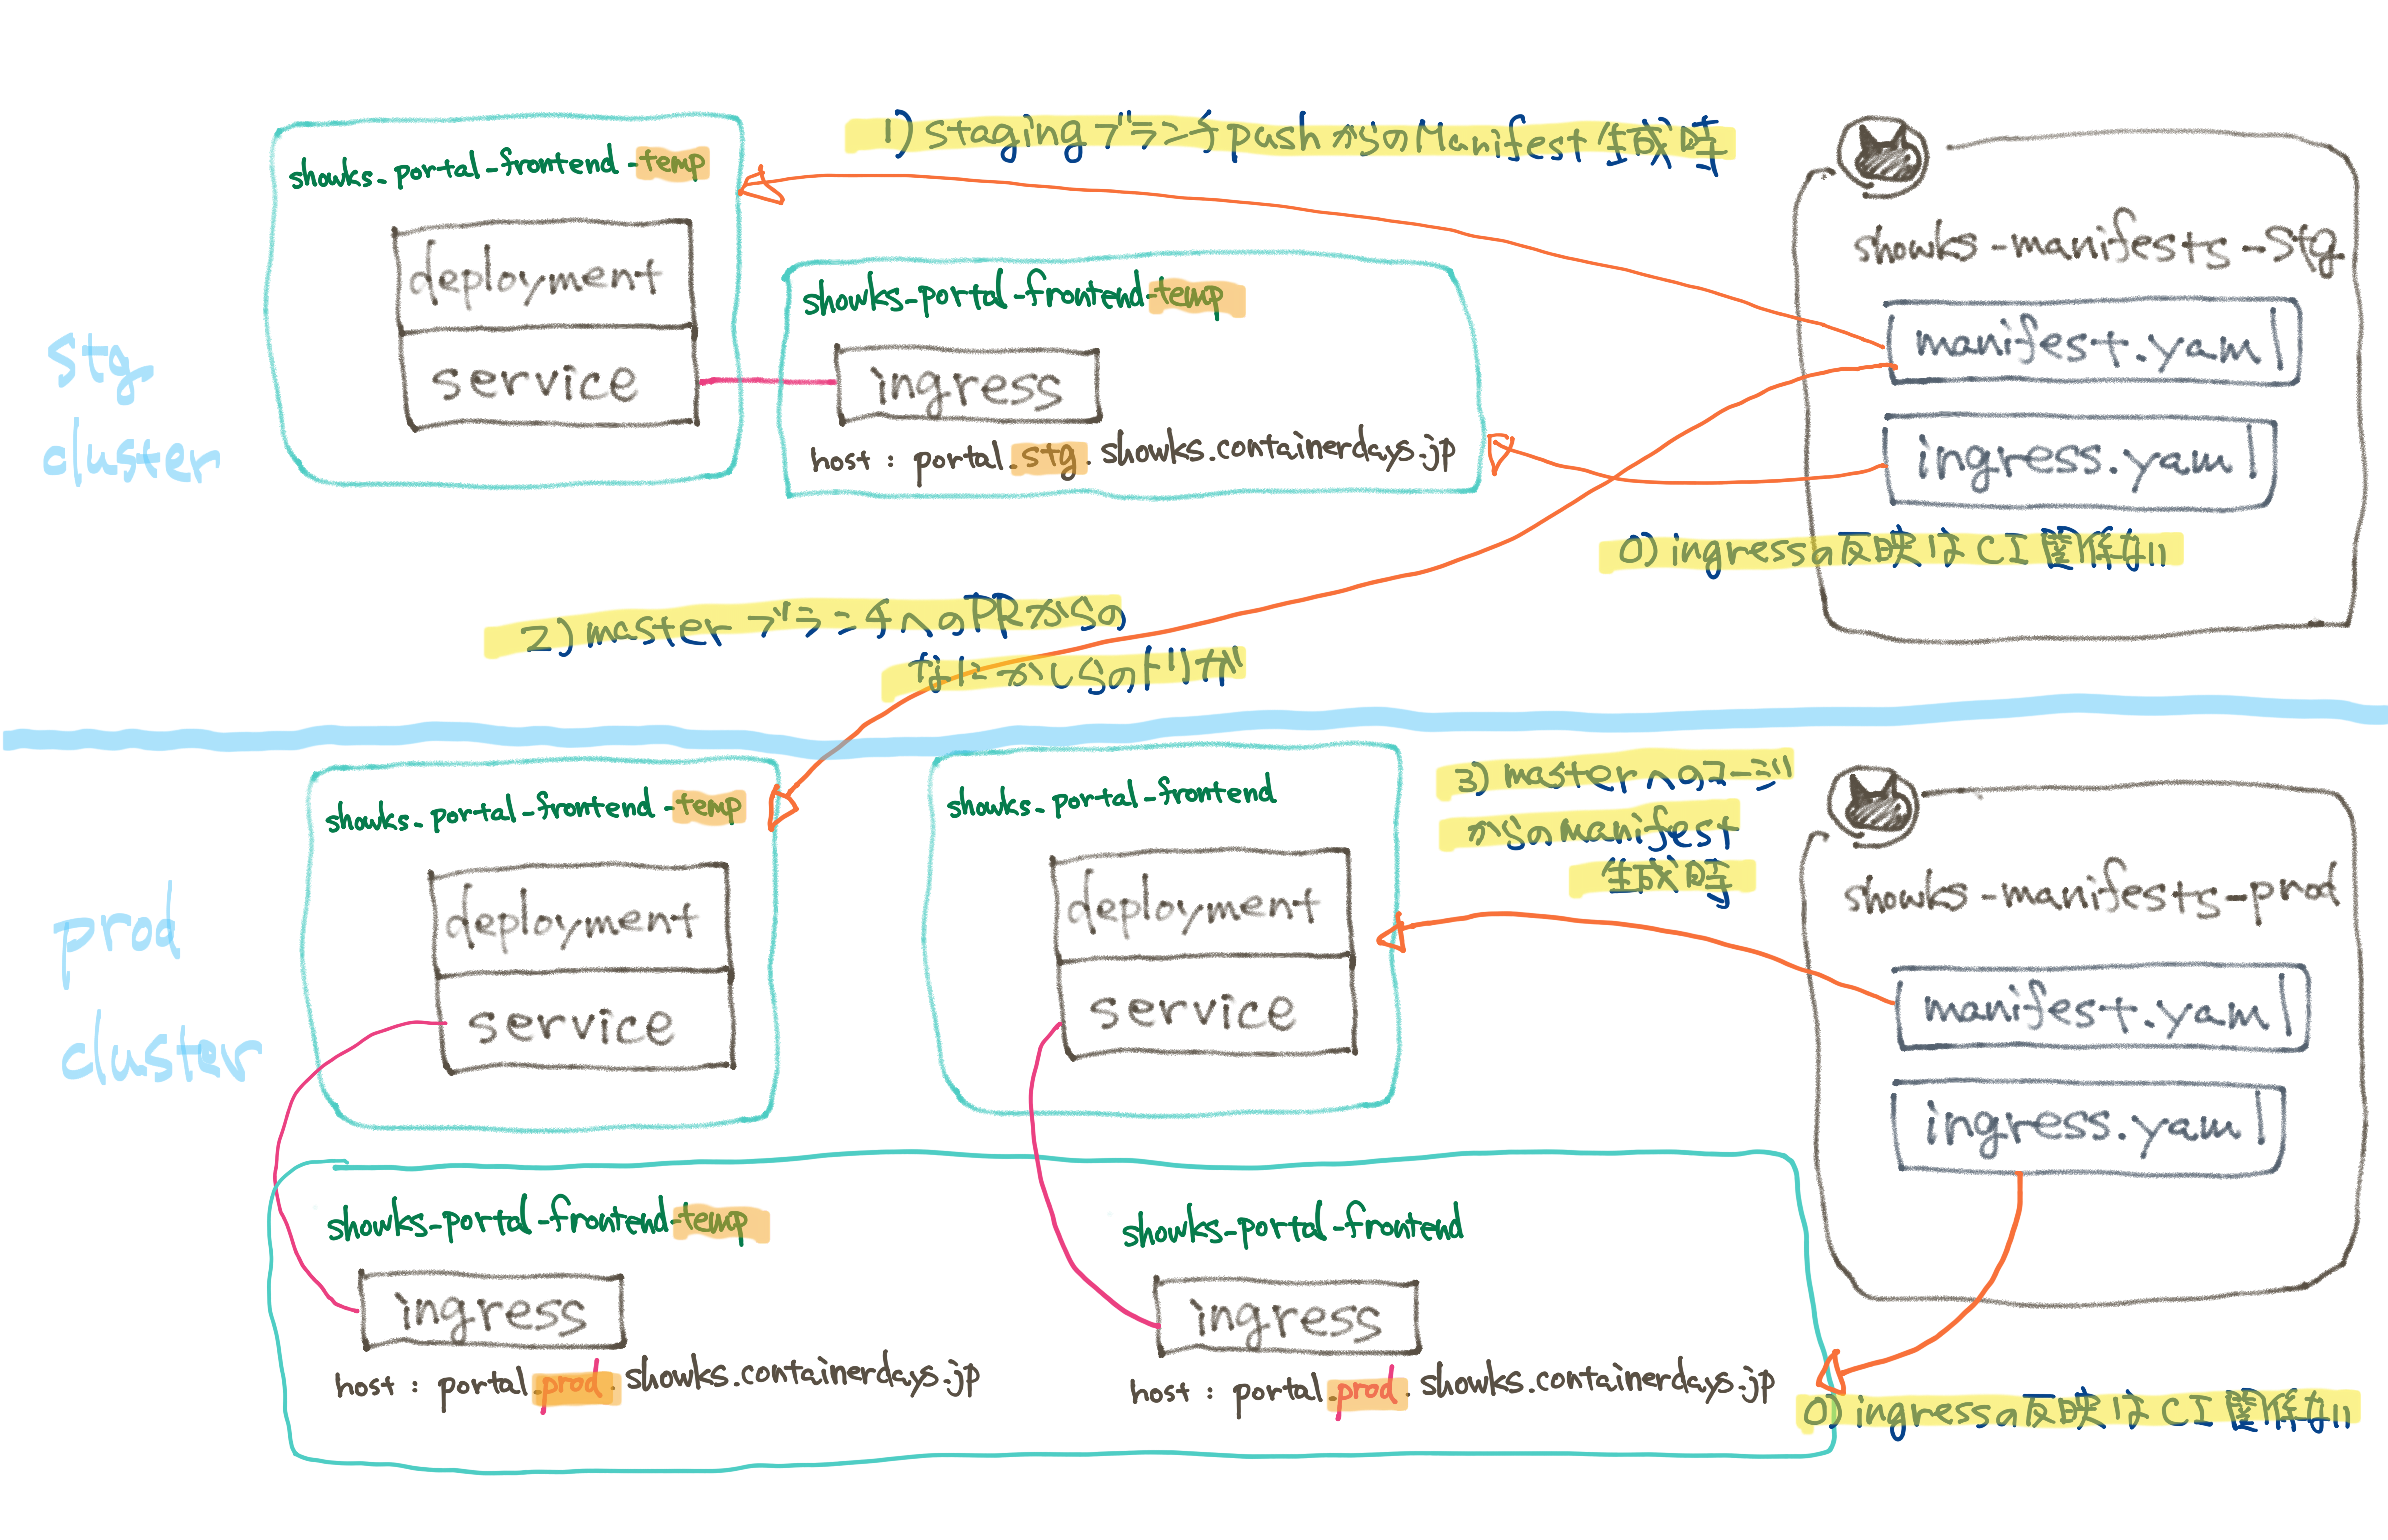 1) stagingブランチpushからのManifest生成時
showks-portal-frontend-temp
deployment
service
showks-portal-frontend-temp
ingress
host : portal.stg.showks.containerdays.jp
stg
cluster
showks-manifests-stg
manifest.yaml
ingress.yaml
0) ingressの反映はCI関係ない
2) masterブランチへのPRからの
なにかしらのトリガ
prod
cluster
showks-portal-frontend-temp
deployment
service
showks-portal-frontend
deployment
service
3) masterへのマージ
からのmanifest
生成時
showks-manifests-prod
manifest.yaml
ingress.yaml
showks-portal-frontend-temp
ingress
host : portal.prod.showks.containerdays.jp
showks-portal-frontend
ingress
host : portal.prod.showks.containerdays.jp
0) ingressの反映はCI関係ない